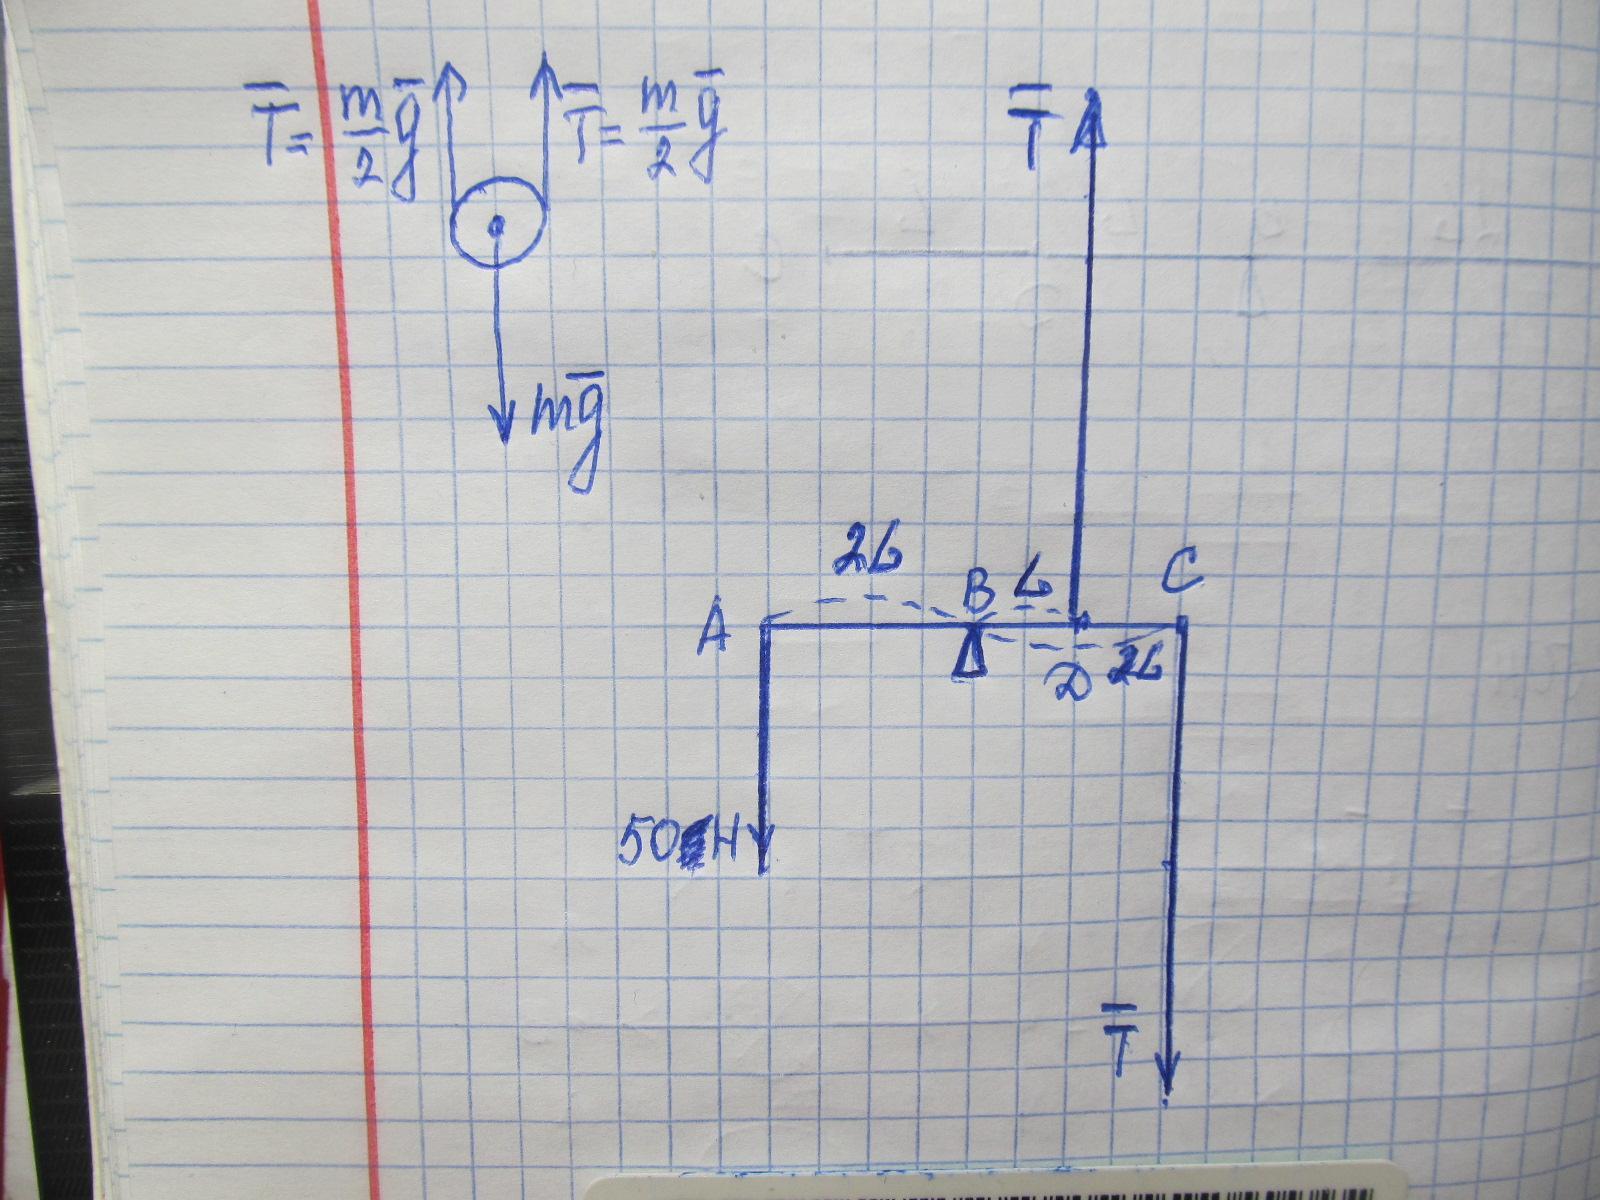 T̅ = m/2 g̅
T̅ = m/2 g̅
T̅
mg̅
2L
B
L
C
A
D
2L
50 H
T̅